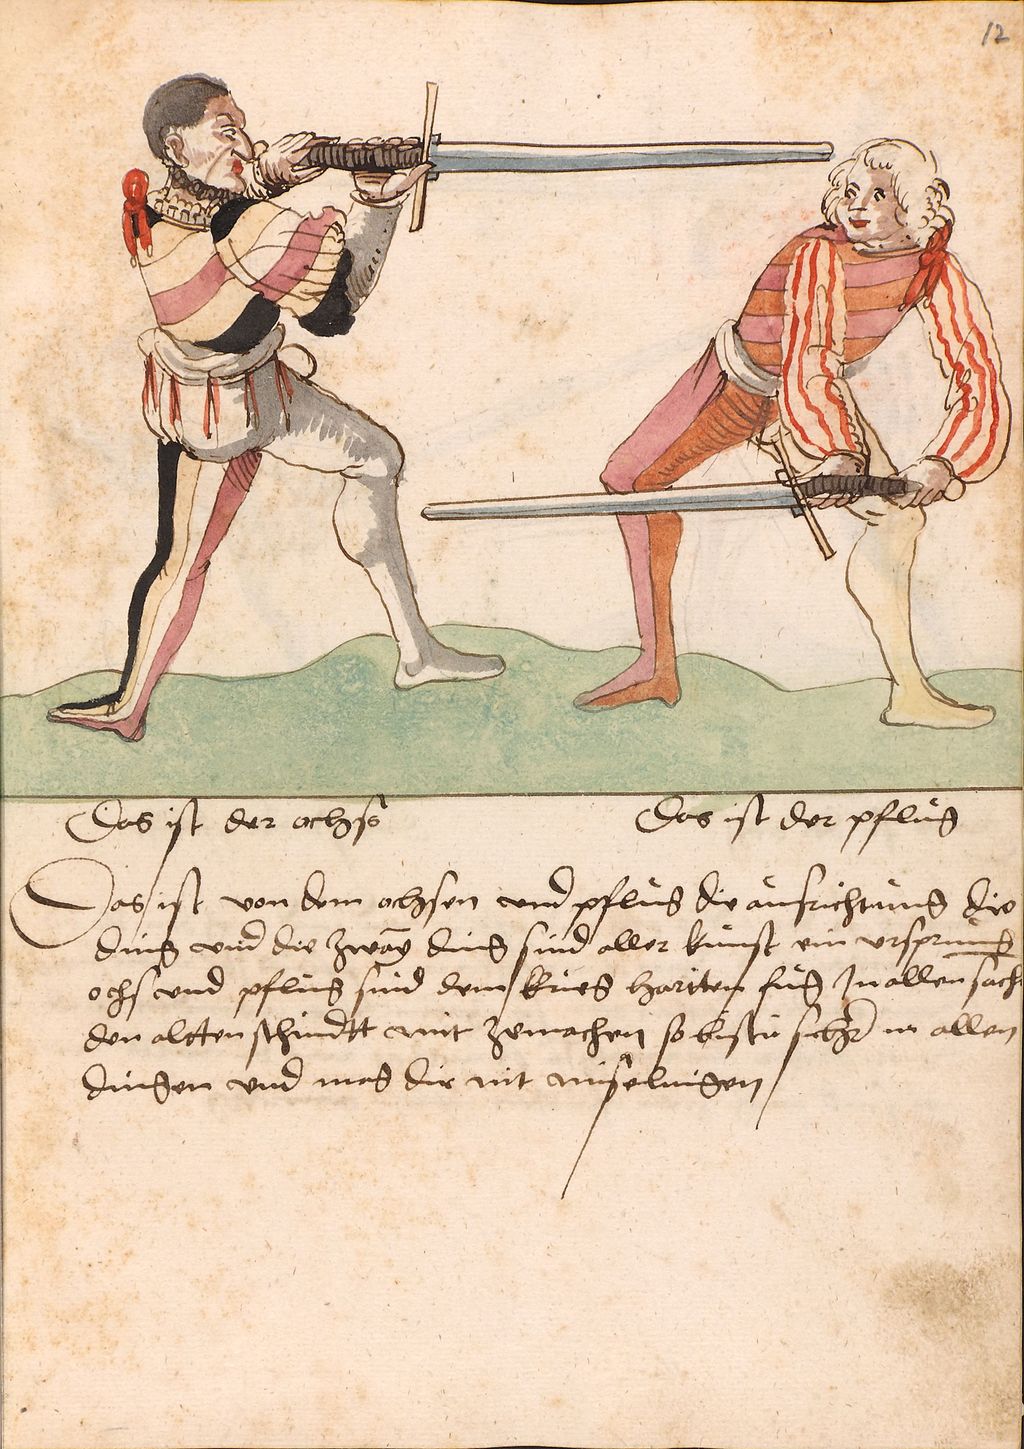 12
Das ist der ochß
Das ist der pflůg
Das ist von dem ochsen vnd pflůg die aůsrichtůng die
ding vnd die zway ding sind aller kůnst ein vrsprůng
ochs vnd pflůg sind dem krieg hartten fůg In allen sach
den altten schindtt mit zemachen so bistu in allen
dingen vnd mag dir nit misselingen